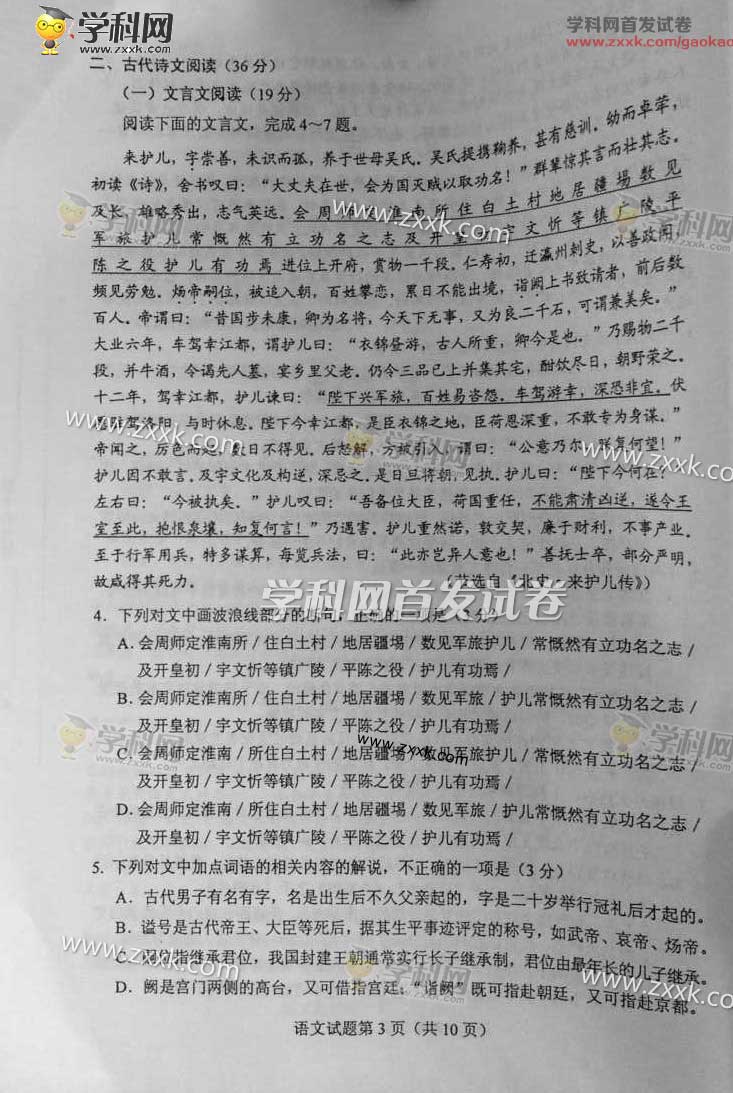 学科网
www.zxxk.com
学科网首发试卷
www.zxxk.com/gaokao
二、古代诗文阅读（36 分）
（一）文言文阅读（19 分）
阅读下面的文言文，完成4～7题。
来护儿，字崇善，未识而孤，养于世母吴氏。吴氏提携鞠养，甚有慈训。幼而卓荦，
初读《诗》，舍书叹曰：“大丈夫在世，会为国灭贼以取功名！”群辈惊其言而壮其志。
及长，雄略秀出，志气英远。会周师定淮南所住白土村地居疆埸数见
军旅护儿常慨然有立功名之志及开皇初宇文忻等镇广陵平
陈之役护儿有功焉 进位上开府，赏物一千段。仁寿初，迁瀛州刺史，以善政闻，
频见劳勉。炀帝嗣位，被追入朝，百姓攀恋，累日不能出境，诣阙上书致请者，前后数
百人。帝谓曰：“昔国步未康，卿为名将，今天下无事，又为良二千石，可谓兼美矣。”
大业六年，车驾幸江都，谓护儿曰：“衣锦昼游，古人所重，卿今是也。”乃赐物二千
段，并牛酒，令谒先人墓，宴乡里父老。仍令三品已上并集其宅，酣饮尽日，朝野荣之。
十二年，驾幸江都，护儿谏曰：“陛下兴军旅，百姓易咨怨。车驾游幸，深恐非宜。伏
驻驾洛阳，与时休息。陛下今幸江都，是臣衣锦之地，臣荷恩深重，不敢专为身谋。”
帝闻之，厉色而起，数日不得见。后怒解，方被引入，谓曰：“公意乃尔，朕复何望！”
护儿因不敢言。及宇文化及构逆，深忌之。是日旦将朝，见执。护儿曰：“陛下今何在？”
左右曰：“今被执矣。”护儿叹曰：“吾备位大臣，荷国重任，不能肃清凶逆，遂令王
室至此，抱恨泉壤，知复何言！”乃遇害。护儿重然诺，敦交契，廉于财利，不事产业。
至于行军用兵，特多谋算，每览兵法，曰：“此亦岂异人意也！”善抚士卒，部分严明，
故咸得其死力。 （节选自《北史·来护儿传》）
学科网首发试卷
4．下列对文中画波浪线部分的断句，正确的一项是（3 分）
A．会周师定淮南所／住白土村／地居疆埸／数见军旅护儿／常慨然有立功名之志／
及开皇初／宇文忻等镇广陵／平陈之役／护儿有功焉／
B．会周师定淮南所／住白土村／地居疆埸／数见军旅／护儿常慨然有立功名之志／
及开皇初／宇文忻等镇广陵／平陈之役／护儿有功焉／
C．会周师定淮南／所住白土村／地居疆埸／数见军旅护儿／常慨然有立功名之志／
及开皇初／宇文忻等镇广陵／平陈之役／护儿有功焉／
D．会周师定淮南／所住白土村／地居疆埸／数见军旅／护儿常慨然有立功名之志／
及开皇初／宇文忻等镇广陵／平陈之役／护儿有功焉／
5．下列对文中加点词语的相关内容的解说，不正确的一项是（3 分）
A．古代男子有名有字，名是出生后不久父亲起的，字是二十岁举行冠礼后才起的。
B．谥号是古代帝王、大臣等死后，据其生平事迹评定的称号，如武帝、哀帝、炀帝。
C．嗣位指继承君位，我国封建王朝通常实行长子继承制，君位由最年长的儿子继承。
D．阙是宫门两侧的高台，又可借指宫廷；“诣阙”既可指赴朝廷，又可指赴京都。
语文试题第 3 页（共 10 页）